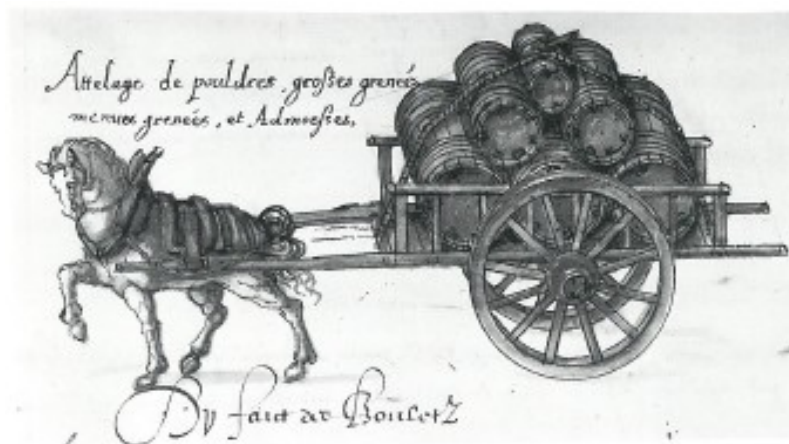 Attelage de pouldres, grosses greneés
menues greneés, et Admorsses,
Du faict des Bouletz